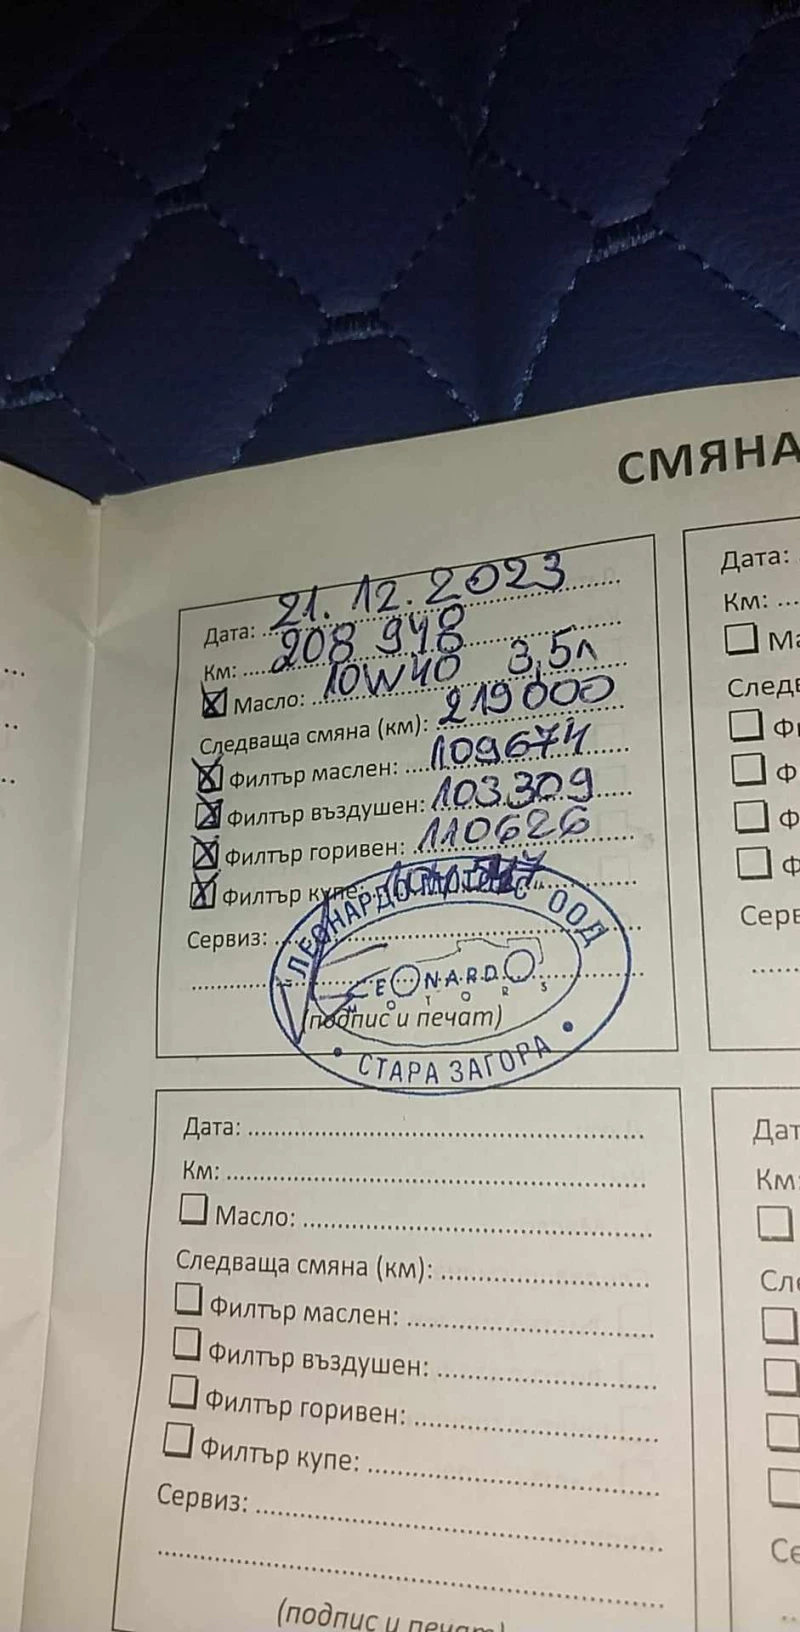 СМЯНА
Дата: 21.12.2023
Км: 208 948
Масло: 10W40 3,5л
Следваща смяна (км): 219000
Филтър маслен: 109674
Филтър въздушен: 103309
Филтър горивен: 110626
Филтър купе:
Сервиз:
ЛЕОНАРДО МОТОРС ООД
LEONARDO
MOTORS
(подпис и печат)
СТАРА ЗАГОРА
Дата:
Км:
Масло:
Следваща смяна (км):
Филтър маслен:
Филтър въздушен:
Филтър горивен:
Филтър купе:
Сервиз:
(подпис и печат)
Дата:
Км: